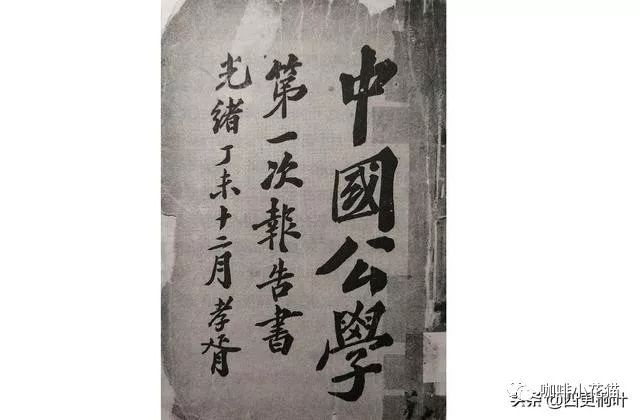 中國公學
第一次報告書
光緒丁未十二月 孝胥
咖啡小花猫
头条@四更桐叶